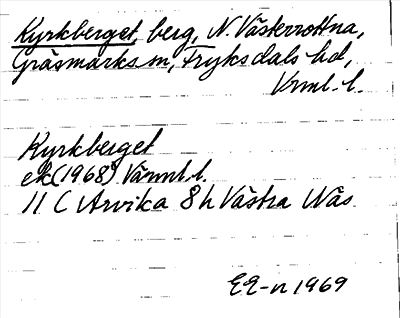 Kyrkberget, berg, N. Västerrottna,
Gräsmarks sn, Fryksdals hd,
Vrml. l.
Kyrkberget
ek (1968) Värml. l.
11 C Arvika 8 h Västra Näs
EE-n 1969